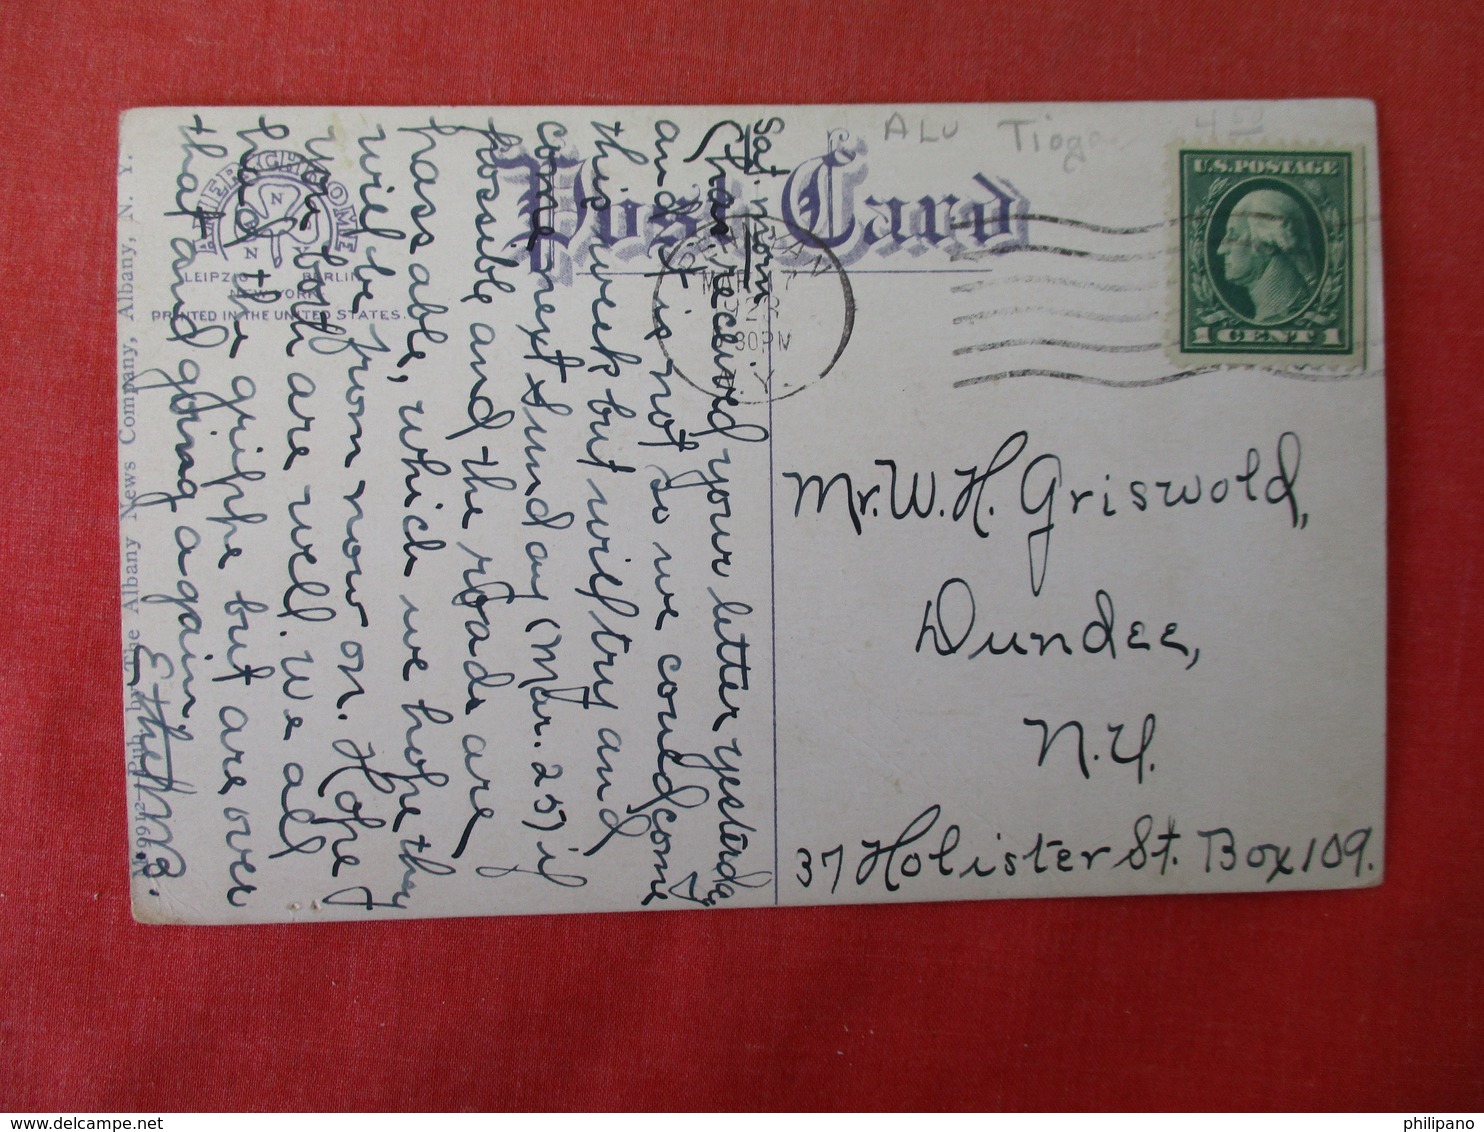 ALU Tioga 4.00
Post Card
U.S. POSTAGE
1 CENT 1
MAR 17
30 PM
Mr. W. H. Griswold,
Dundee,
N.Y.
37 Holister St. Box 109.
Sat. morn.
Chas. received your letter yesterday
and it is not so we could come
this week but will try and
come next Sunday (Mar. 25) if
possible and the roads are
passable, which we hope they
will be from now on. Hope
you both are well. We all
had the grippe but are over
that and going again,
Ethel M B.
AMERICHROME
LEIPZIG BERLIN
NEW YORK
PRINTED IN THE UNITED STATES.
Pub. by The Albany News Company, Albany, N. Y.
philipano
www.delcampe.net